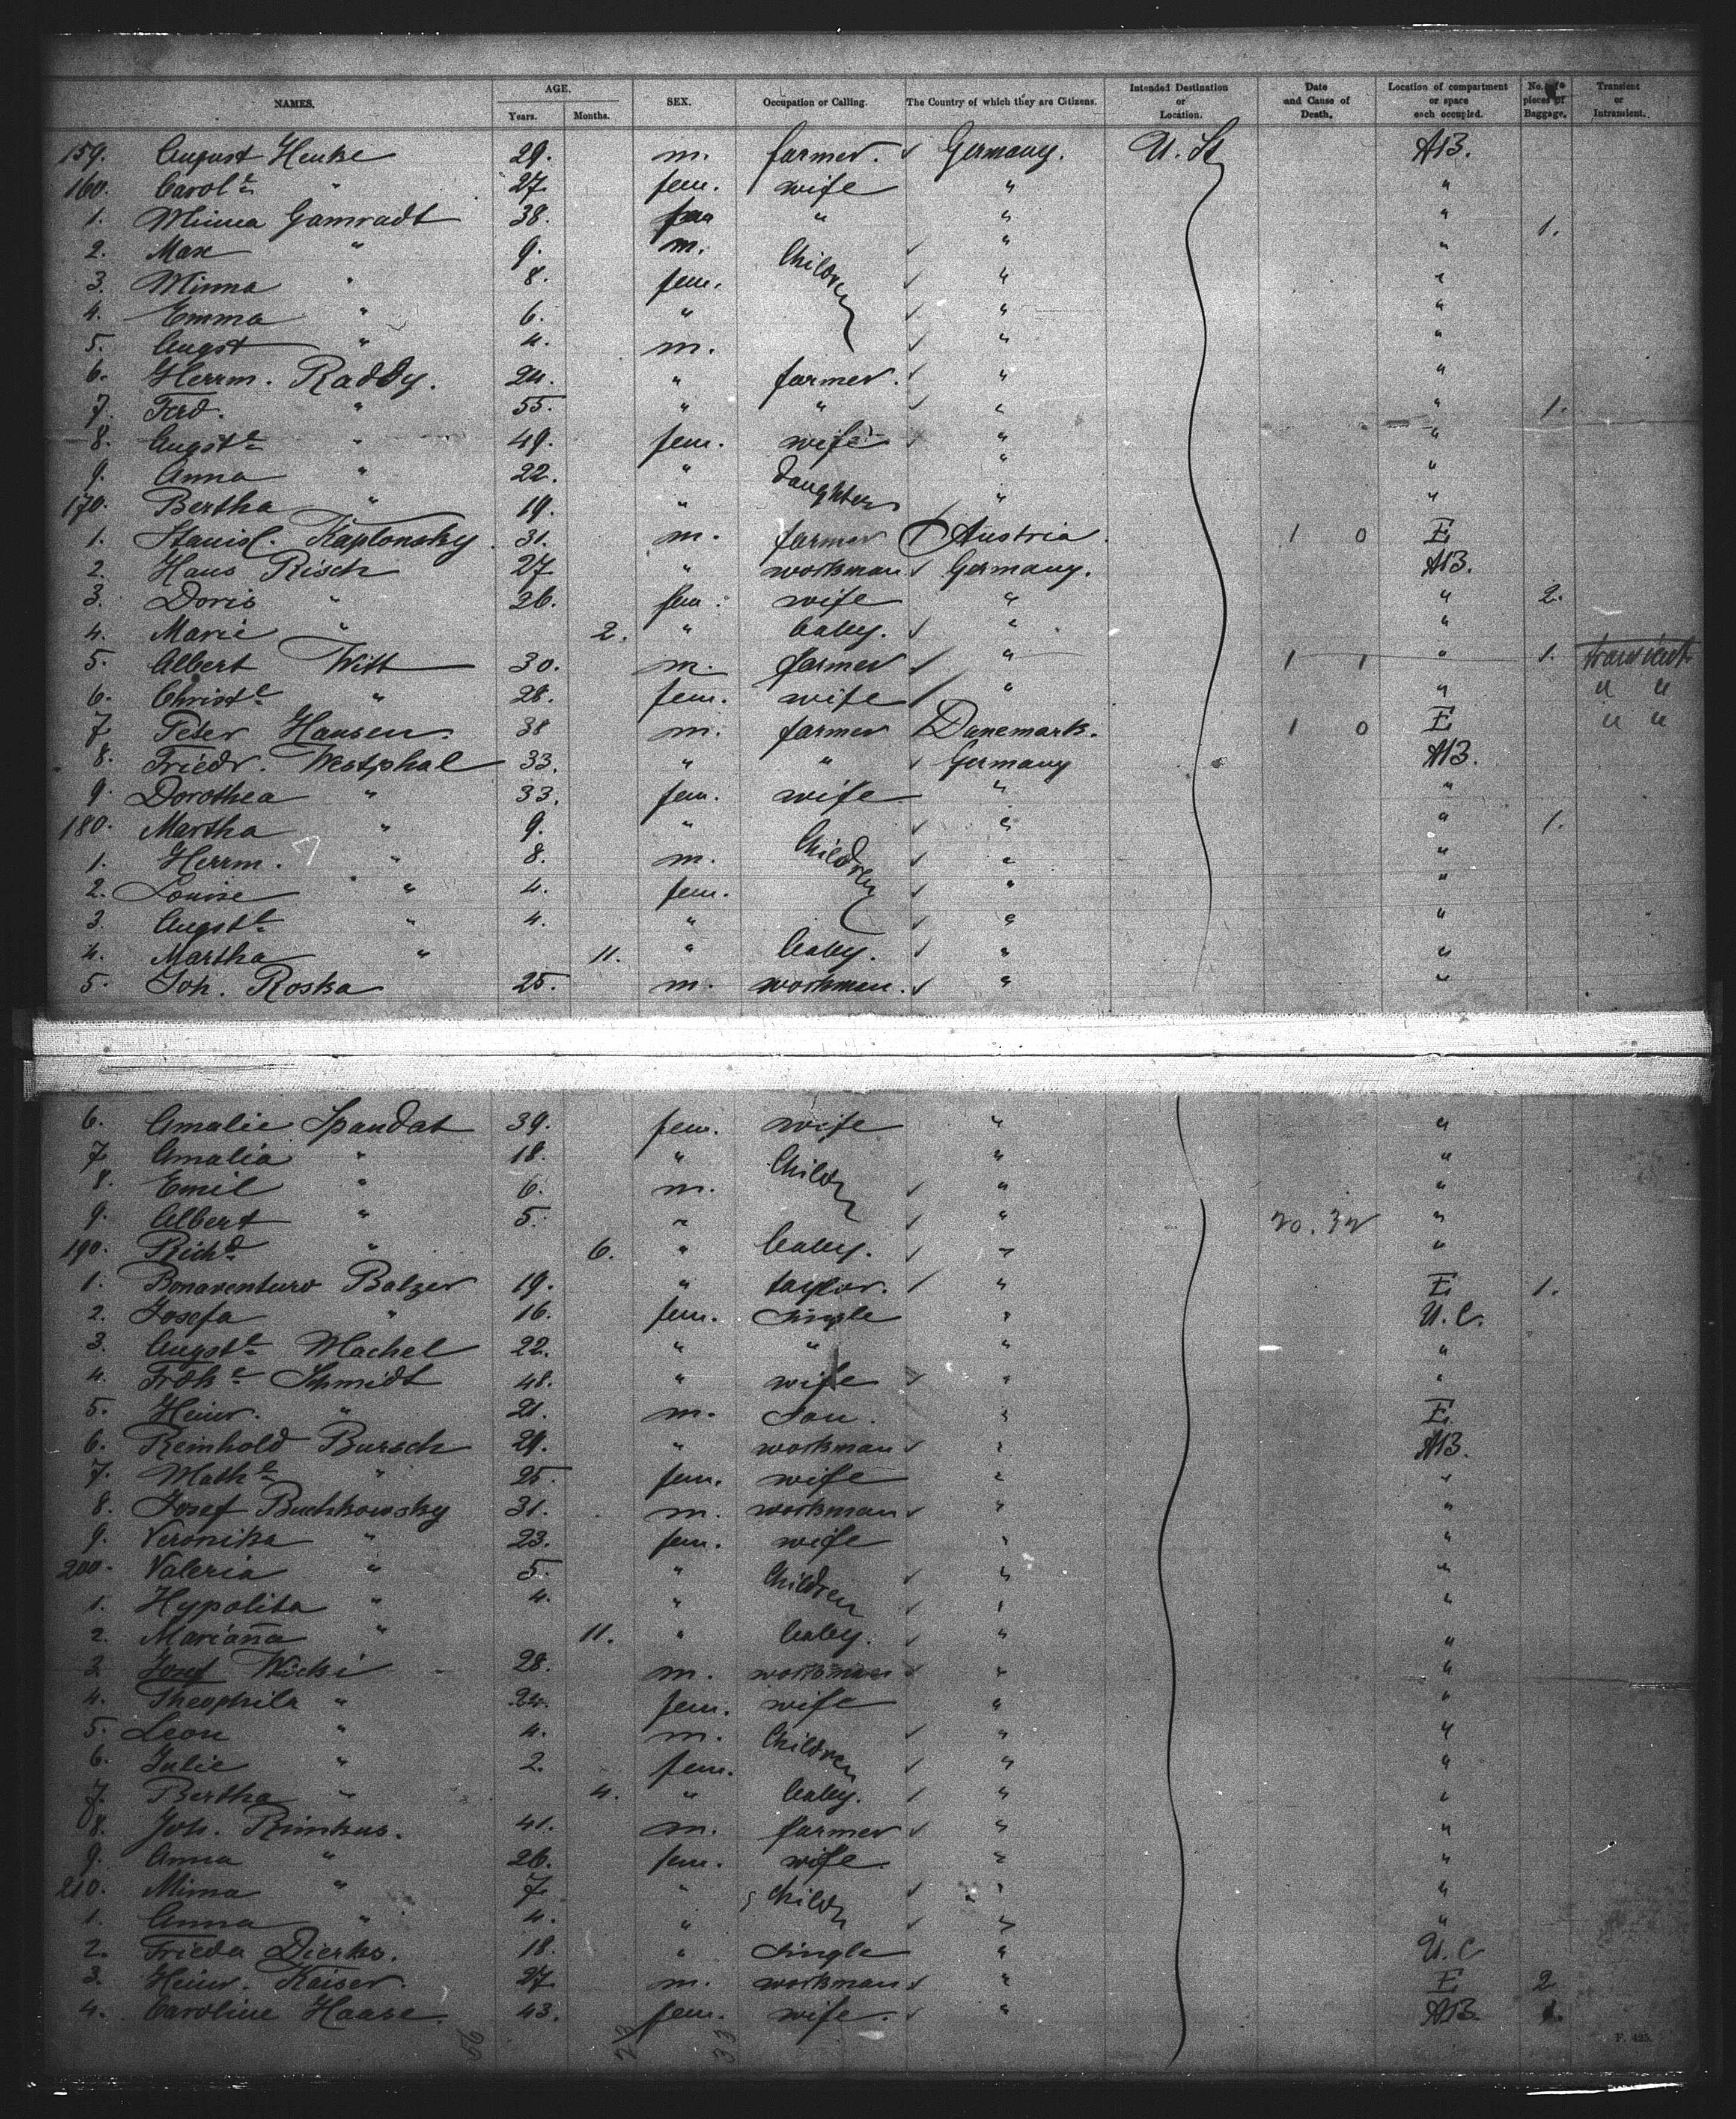 NAMES. AGE. Years. Months. SEX. Occupation or Calling. The Country of which they are Citizens. Intended Destination or Location. Date and Cause of Death. Location of compartment or space each occupied. No. of pieces of Baggage. Transient or Intransient.
159. August Henke 29. m. farmer. ✓ Germany. U. St. AB.
160. Carol e " 27. fem. wife " "
1. Minna Gamradt 38. fem " " " 1.
2. Max " 9. m. Children ✓ " "
3. Minna " 8. fem. ✓ " "
4. Emma " 6. " ✓ " "
5. Augst " 4. m. ✓ " "
6. Herrm. Raddy. 24. " farmer. ✓ " "
7. Ferd. " 55. " " ✓ " " 1.
8. Augste " 49. fem. wife ✓ " "
9. Anna " 22. " daughters " "
170. Bertha " 19. " " "
1. Stanisl. Kaplonsky. 31. m. farmer Austria. 1 0 E
2. Hans Risch 27 " workman ✓ Germany. AB.
3. Doris " 26. fem. wife " " 2.
4. Marie " 2. " baby. ✓ " "
5. Albert Witt 30. m. farmer ✓ " 1 1 " 1. transient
6. Christe " 28. fem. wife " " " "
7. Peter Hansen. 38 m. farmer Danemark. 1 0 E " "
8. Friedr. Westphal 33. " " ✓ Germany AB.
9. Dorothea " 33. fem. wife " "
180. Martha " 9. " Children ✓ " " 1.
1. Herrm. " 8. m. ✓ " "
2. Louise " 4. fem. ✓ " "
3. Augste " 4. " ✓ " "
4. Martha " 11. " baby. ✓ " "
5. Joh. Roska 25. m. workman. ✓ " "
6. Amalie Spandat 39. fem. wife " "
7. Amalia " 18. " Childr " "
8. Emil " 6. m. ✓ " "
9. Albert " 5. " ✓ " 20. 32 "
190. Richd " 6. " baby. ✓ " "
1. Bonaventuro Balzer 19. " taylor. ✓ " E 1.
2. Josefa " 16. fem. single " U. C.
3. Augste Machel 22. " " " "
4. Frdke Schmidt 48. " wife ✓ " "
5. Heinr. " 21. m. son. " E.
6. Reinhold Bursch 29. " workman ✓ " AB.
7. Mathe " 25. fem. wife " "
8. Josef Buchkowsky 31. m. workman ✓ " "
9. Veronika " 23. fem. wife " "
200. Valeria " 5. " Children ✓ " "
1. Hypolita " 4. " ✓ " "
2. Mariana " 11. " baby. ✓ " "
3. Josef Wicki 28. m. workman ✓ " "
4. Theophila " 24. fem. wife " "
5. Leon " 4. m. Children ✓ " "
6. Julie " 2. fem. ✓ " "
7. Bertha " 4. " baby. ✓ " "
8. Joh. Rimkus. 41. m. farmer ✓ " "
9. Anna " 26. fem. wife. " "
210. Minna " 7. " Childr ✓ " "
1. Anna " 4. " ✓ " "
2. Frieda Dierks. 18. " single " U. C
3. Heinr. Kaiser. 27 m. workman ✓ " E 2
4. Caroline Haase. 43. fem. wife. ✓ " AB. 1.
56 23 33
F. 425.